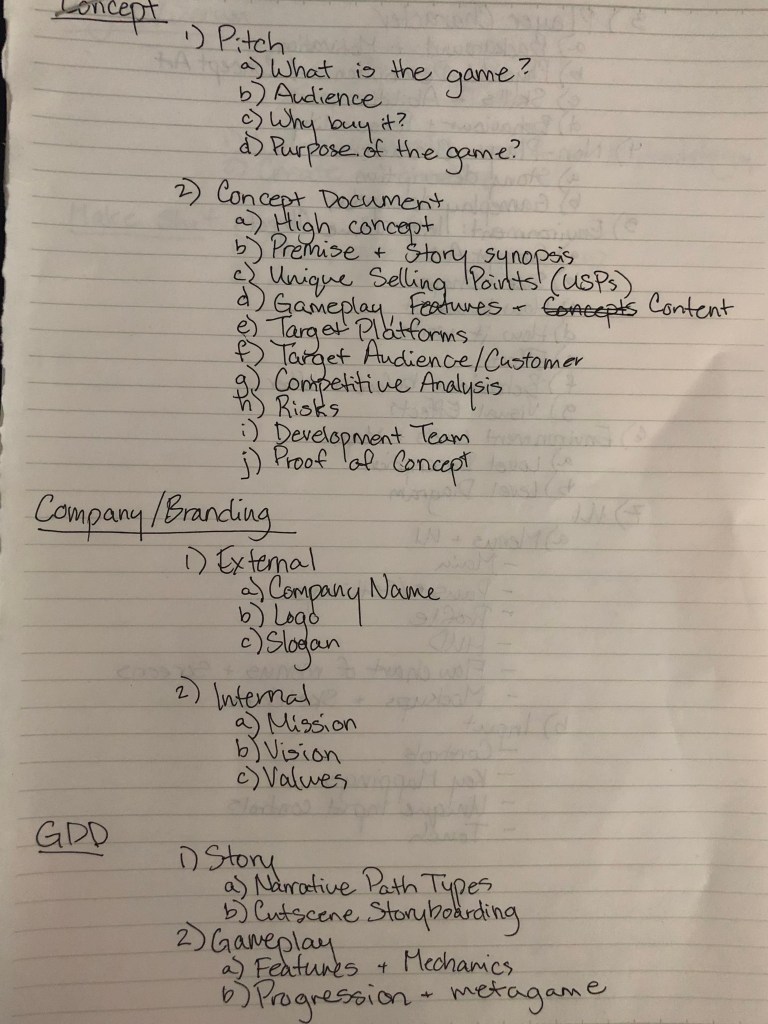 Concept
1) Pitch
a) What is the game?
b) Audience
c) Why buy it?
d) Purpose of the game?
2) Concept Document
a) High concept
b) Premise + Story synopsis
c) Unique Selling Points (USPs)
d) Gameplay Features + Concepts Content
e) Target Platforms
f) Target Audience/Customer
g) Competitive Analysis
h) Risks
i) Development Team
j) Proof of Concept
Company/Branding
1) External
a) Company Name
b) Logo
c) Slogan
2) Internal
a) Mission
b) Vision
c) Values
GDD
1) Story
a) Narrative Path Types
b) Cutscene Storyboarding
2) Gameplay
a) Features + Mechanics
b) Progression + metagame